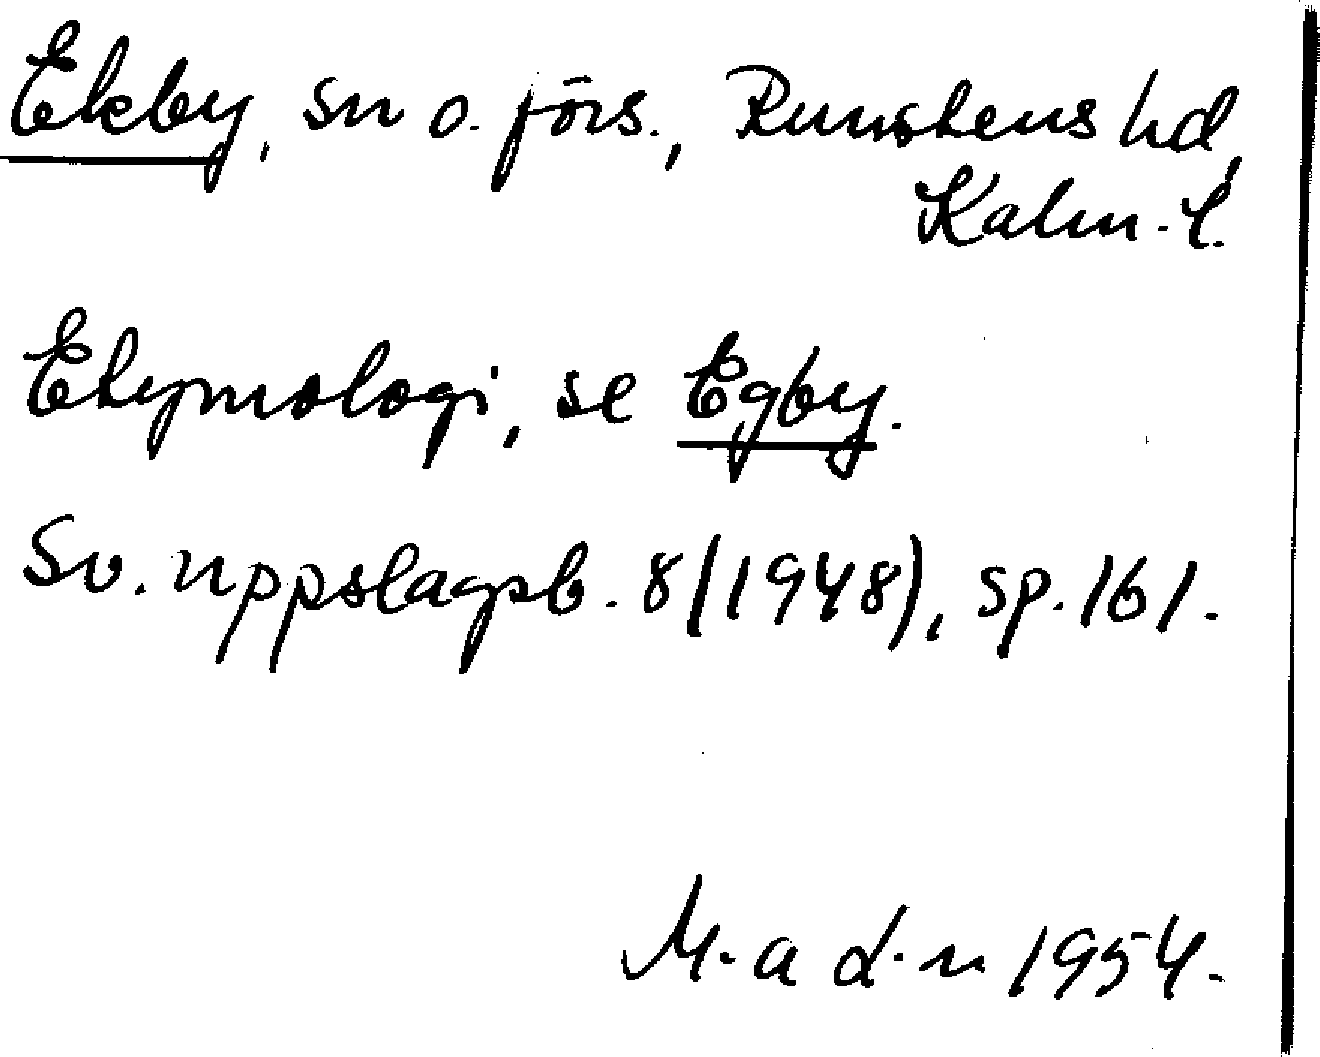 Ekby, sn o. förs., Runstens hd,
Kalm. l.
Etymologi, se Egby.
Sv. uppslagsb. 8 (1948), sp. 161.
M. a d. n 1954.